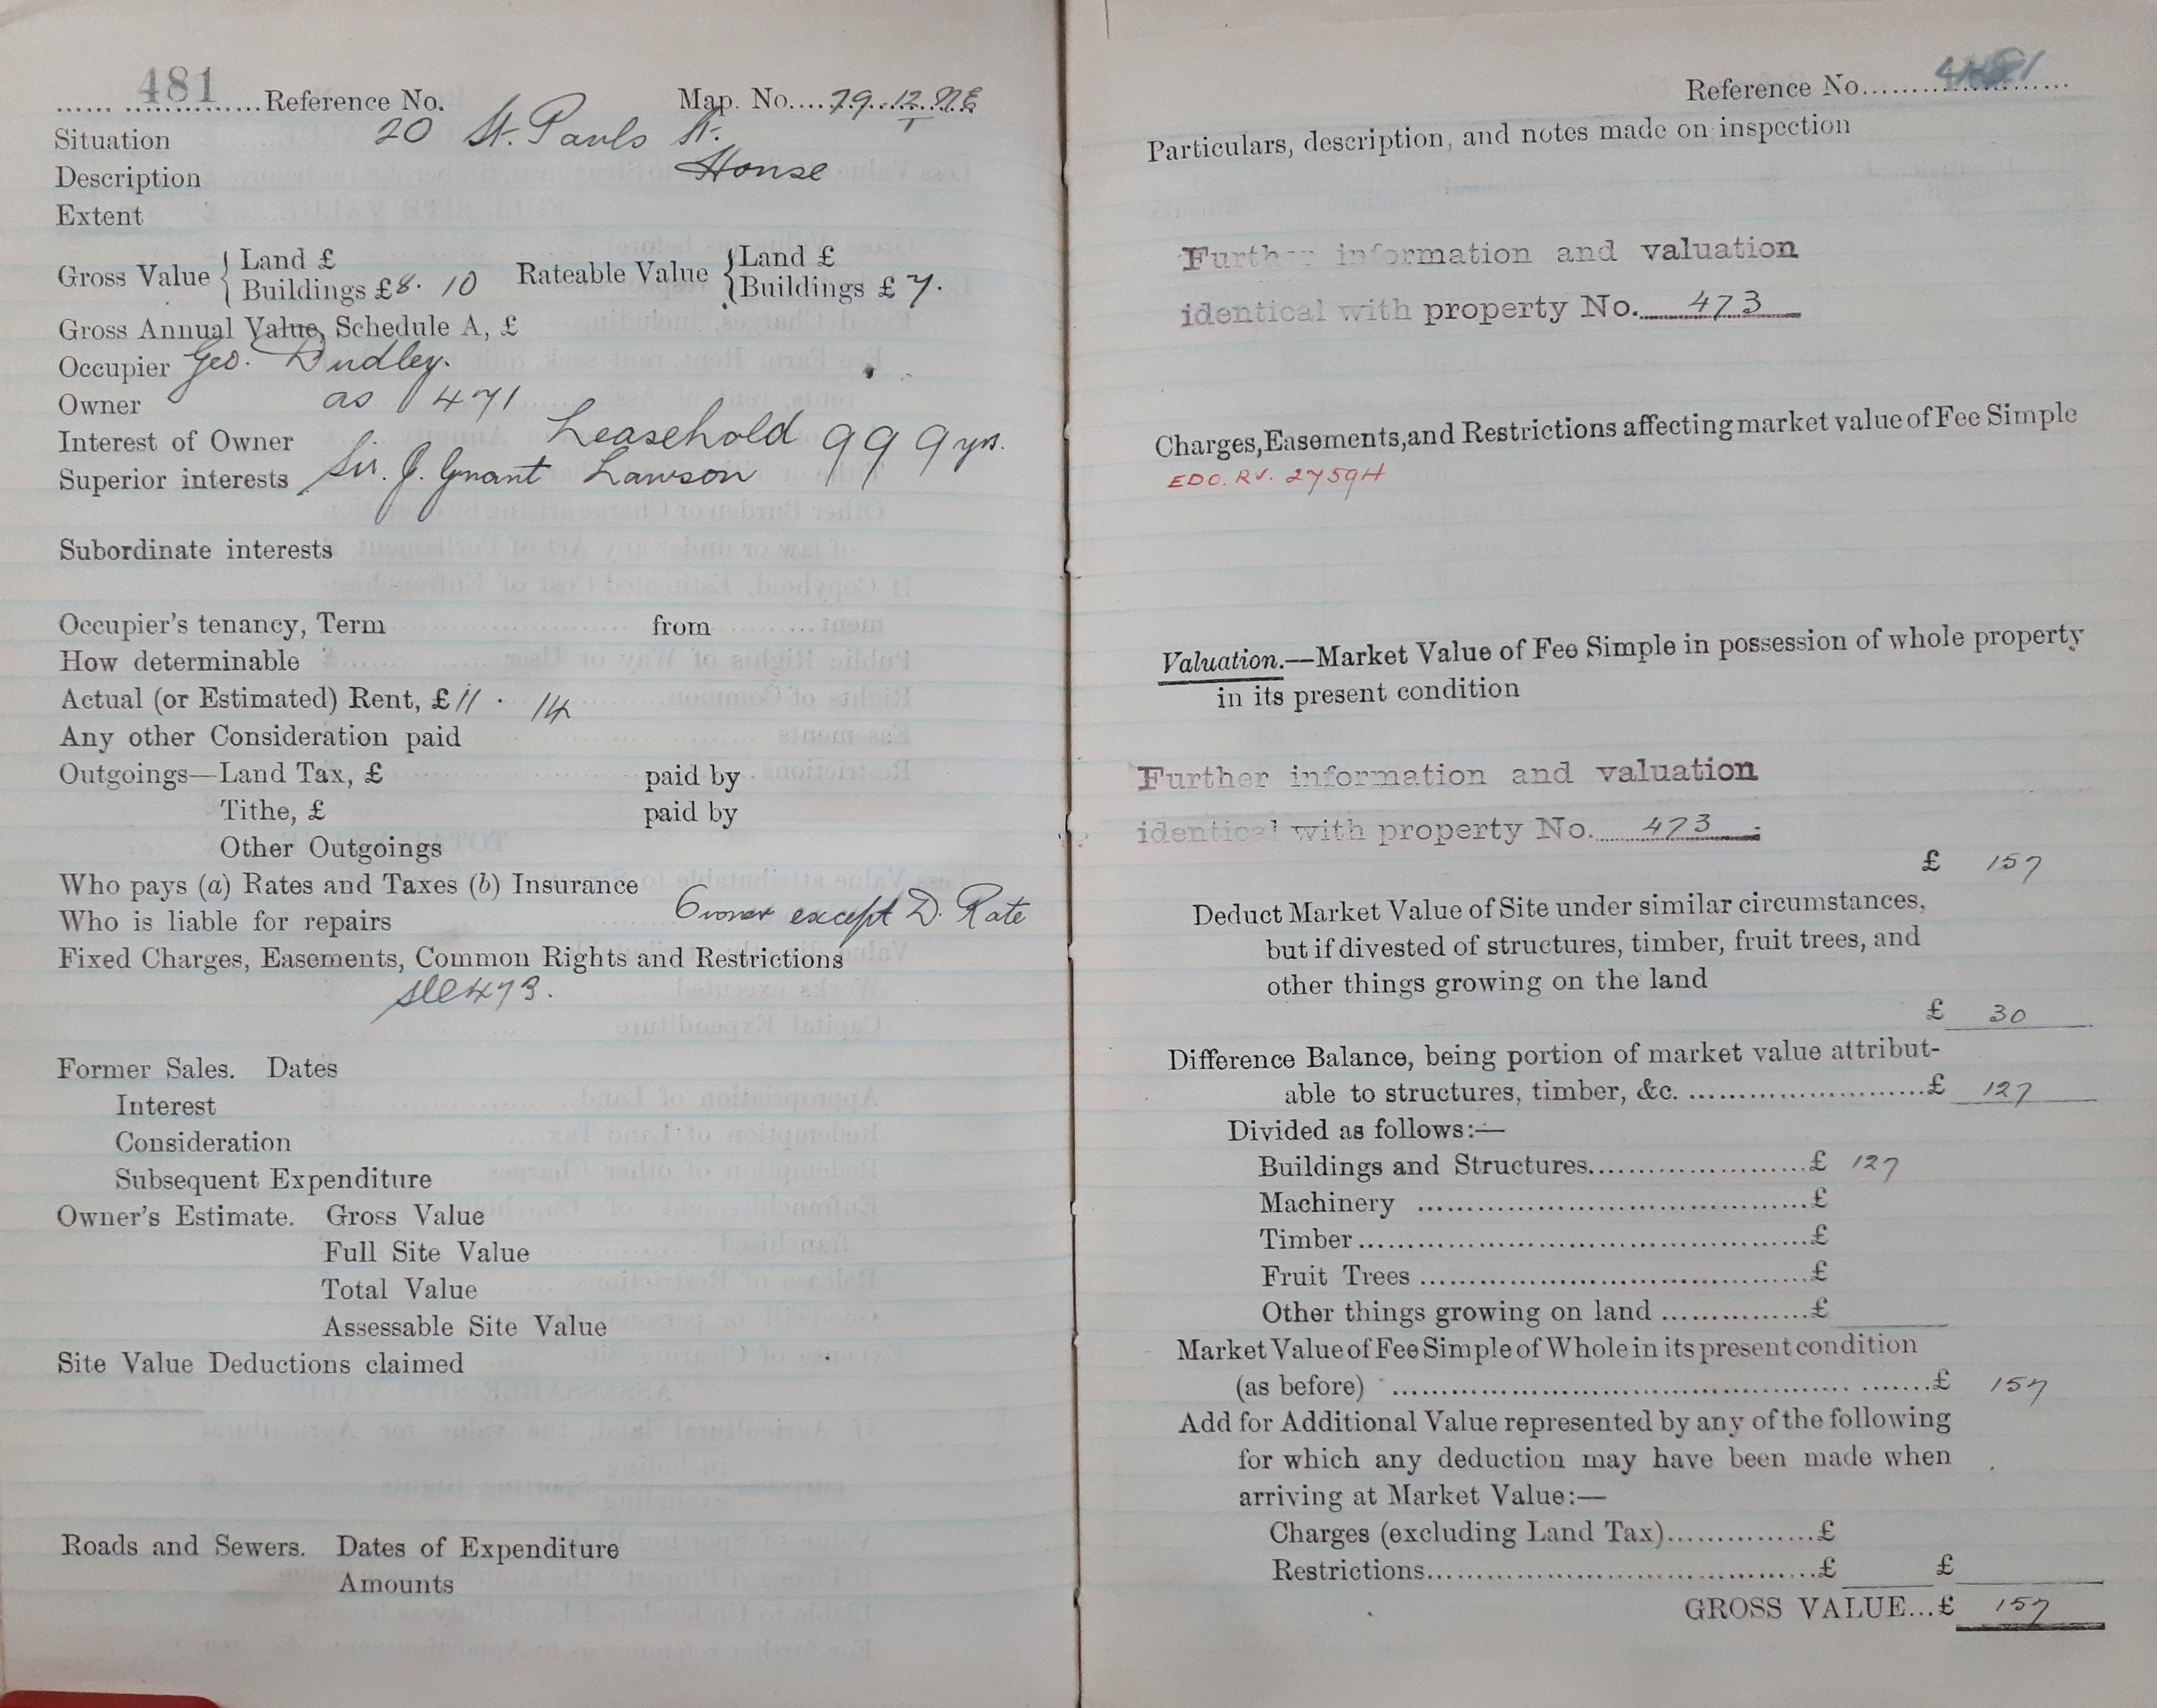 481 Reference No. Map. No. 79.12.N.E
1
Situation 20 St. Pauls St.
Description House
Extent
Gross Value { Land £ Rateable Value { Land £
Buildings £8. 10 Buildings £ 7.
Gross Annual Value, Schedule A, £
Occupier Geo. Dudley.
Owner as 471
Interest of Owner Leasehold 999 yrs.
Superior interests Sir. J. Grant Lawson
Subordinate interests
Occupier's tenancy, Term from
How determinable
Actual (or Estimated) Rent, £11 . 14
Any other Consideration paid
Outgoings—Land Tax, £ paid by
Tithe, £ paid by
Other Outgoings
Who pays (a) Rates and Taxes (b) Insurance
Who is liable for repairs Owner except D. Rate
Fixed Charges, Easements, Common Rights and Restrictions
see 473.
Former Sales. Dates
Interest
Consideration
Subsequent Expenditure
Owner's Estimate. Gross Value
Full Site Value
Total Value
Assessable Site Value
Site Value Deductions claimed
Roads and Sewers. Dates of Expenditure
Amounts
Reference No. 481
Particulars, description, and notes made on inspection
Further information and valuation
identical with property No. 473
Charges, Easements, and Restrictions affecting market value of Fee Simple
EDO. RV. 2759H
Valuation.—Market Value of Fee Simple in possession of whole property
in its present condition
Further information and valuation
identical with property No. 473
£ 157
Deduct Market Value of Site under similar circumstances,
but if divested of structures, timber, fruit trees, and
other things growing on the land
£ 30
Difference Balance, being portion of market value attribut-
able to structures, timber, &c. £ 127
Divided as follows:—
Buildings and Structures £ 127
Machinery £
Timber £
Fruit Trees £
Other things growing on land £
Market Value of Fee Simple of Whole in its present condition
(as before) £ 157
Add for Additional Value represented by any of the following
for which any deduction may have been made when
arriving at Market Value:—
Charges (excluding Land Tax) £
Restrictions £ £
GROSS VALUE...£ 157